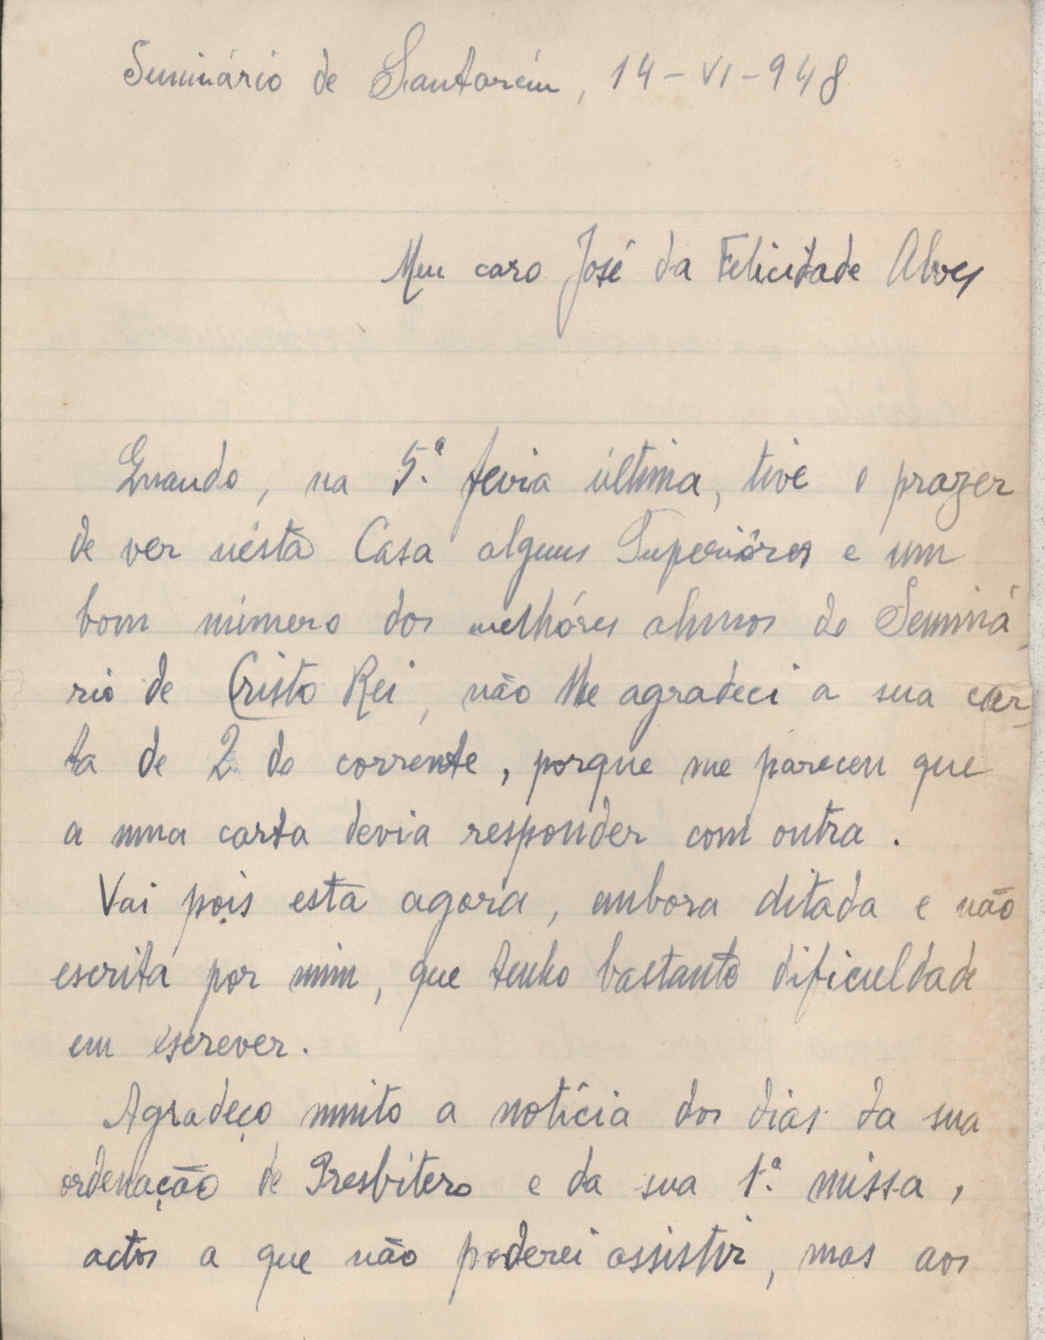 Seminário de Santarém, 14-VI-948
Meu caro José da Felicidade Alves
Quando, na 5.ª feira última, tive o prazer
de ver nésta Casa alguns Superiôres e um
bom número dos melhóres alunos do Seminá-
rio de Cristo Rei, não lhe agradeci a sua car-
ta de 2 do corrente, porque me pareceu que
a uma carta devia responder com outra.
Vai pois esta agora, embora ditada e não
escrita por mim, que tenho bastante dificuldade
em escrever.
Agradeço muito a notícia dos dias da sua
ordenação de Presbitero e da sua 1.ª missa,
actos a que não poderei assistir, mas aos